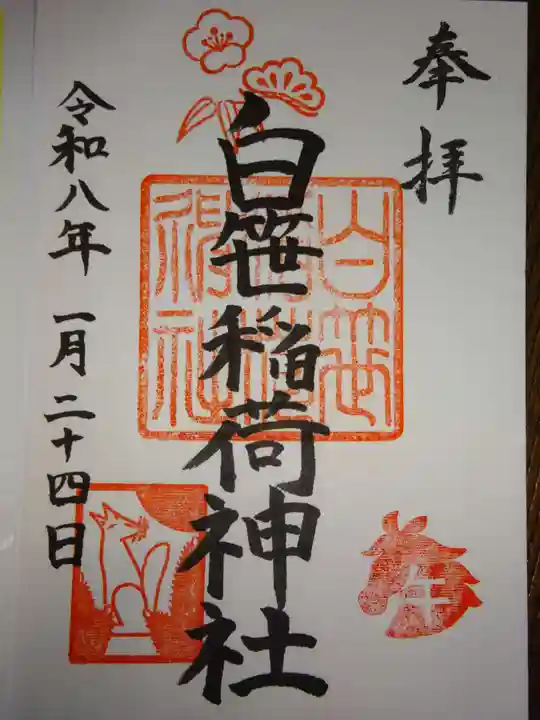 奉拝
白笹稲荷神社
令和八年 一月二十四日
白笹
稲荷
神社
午